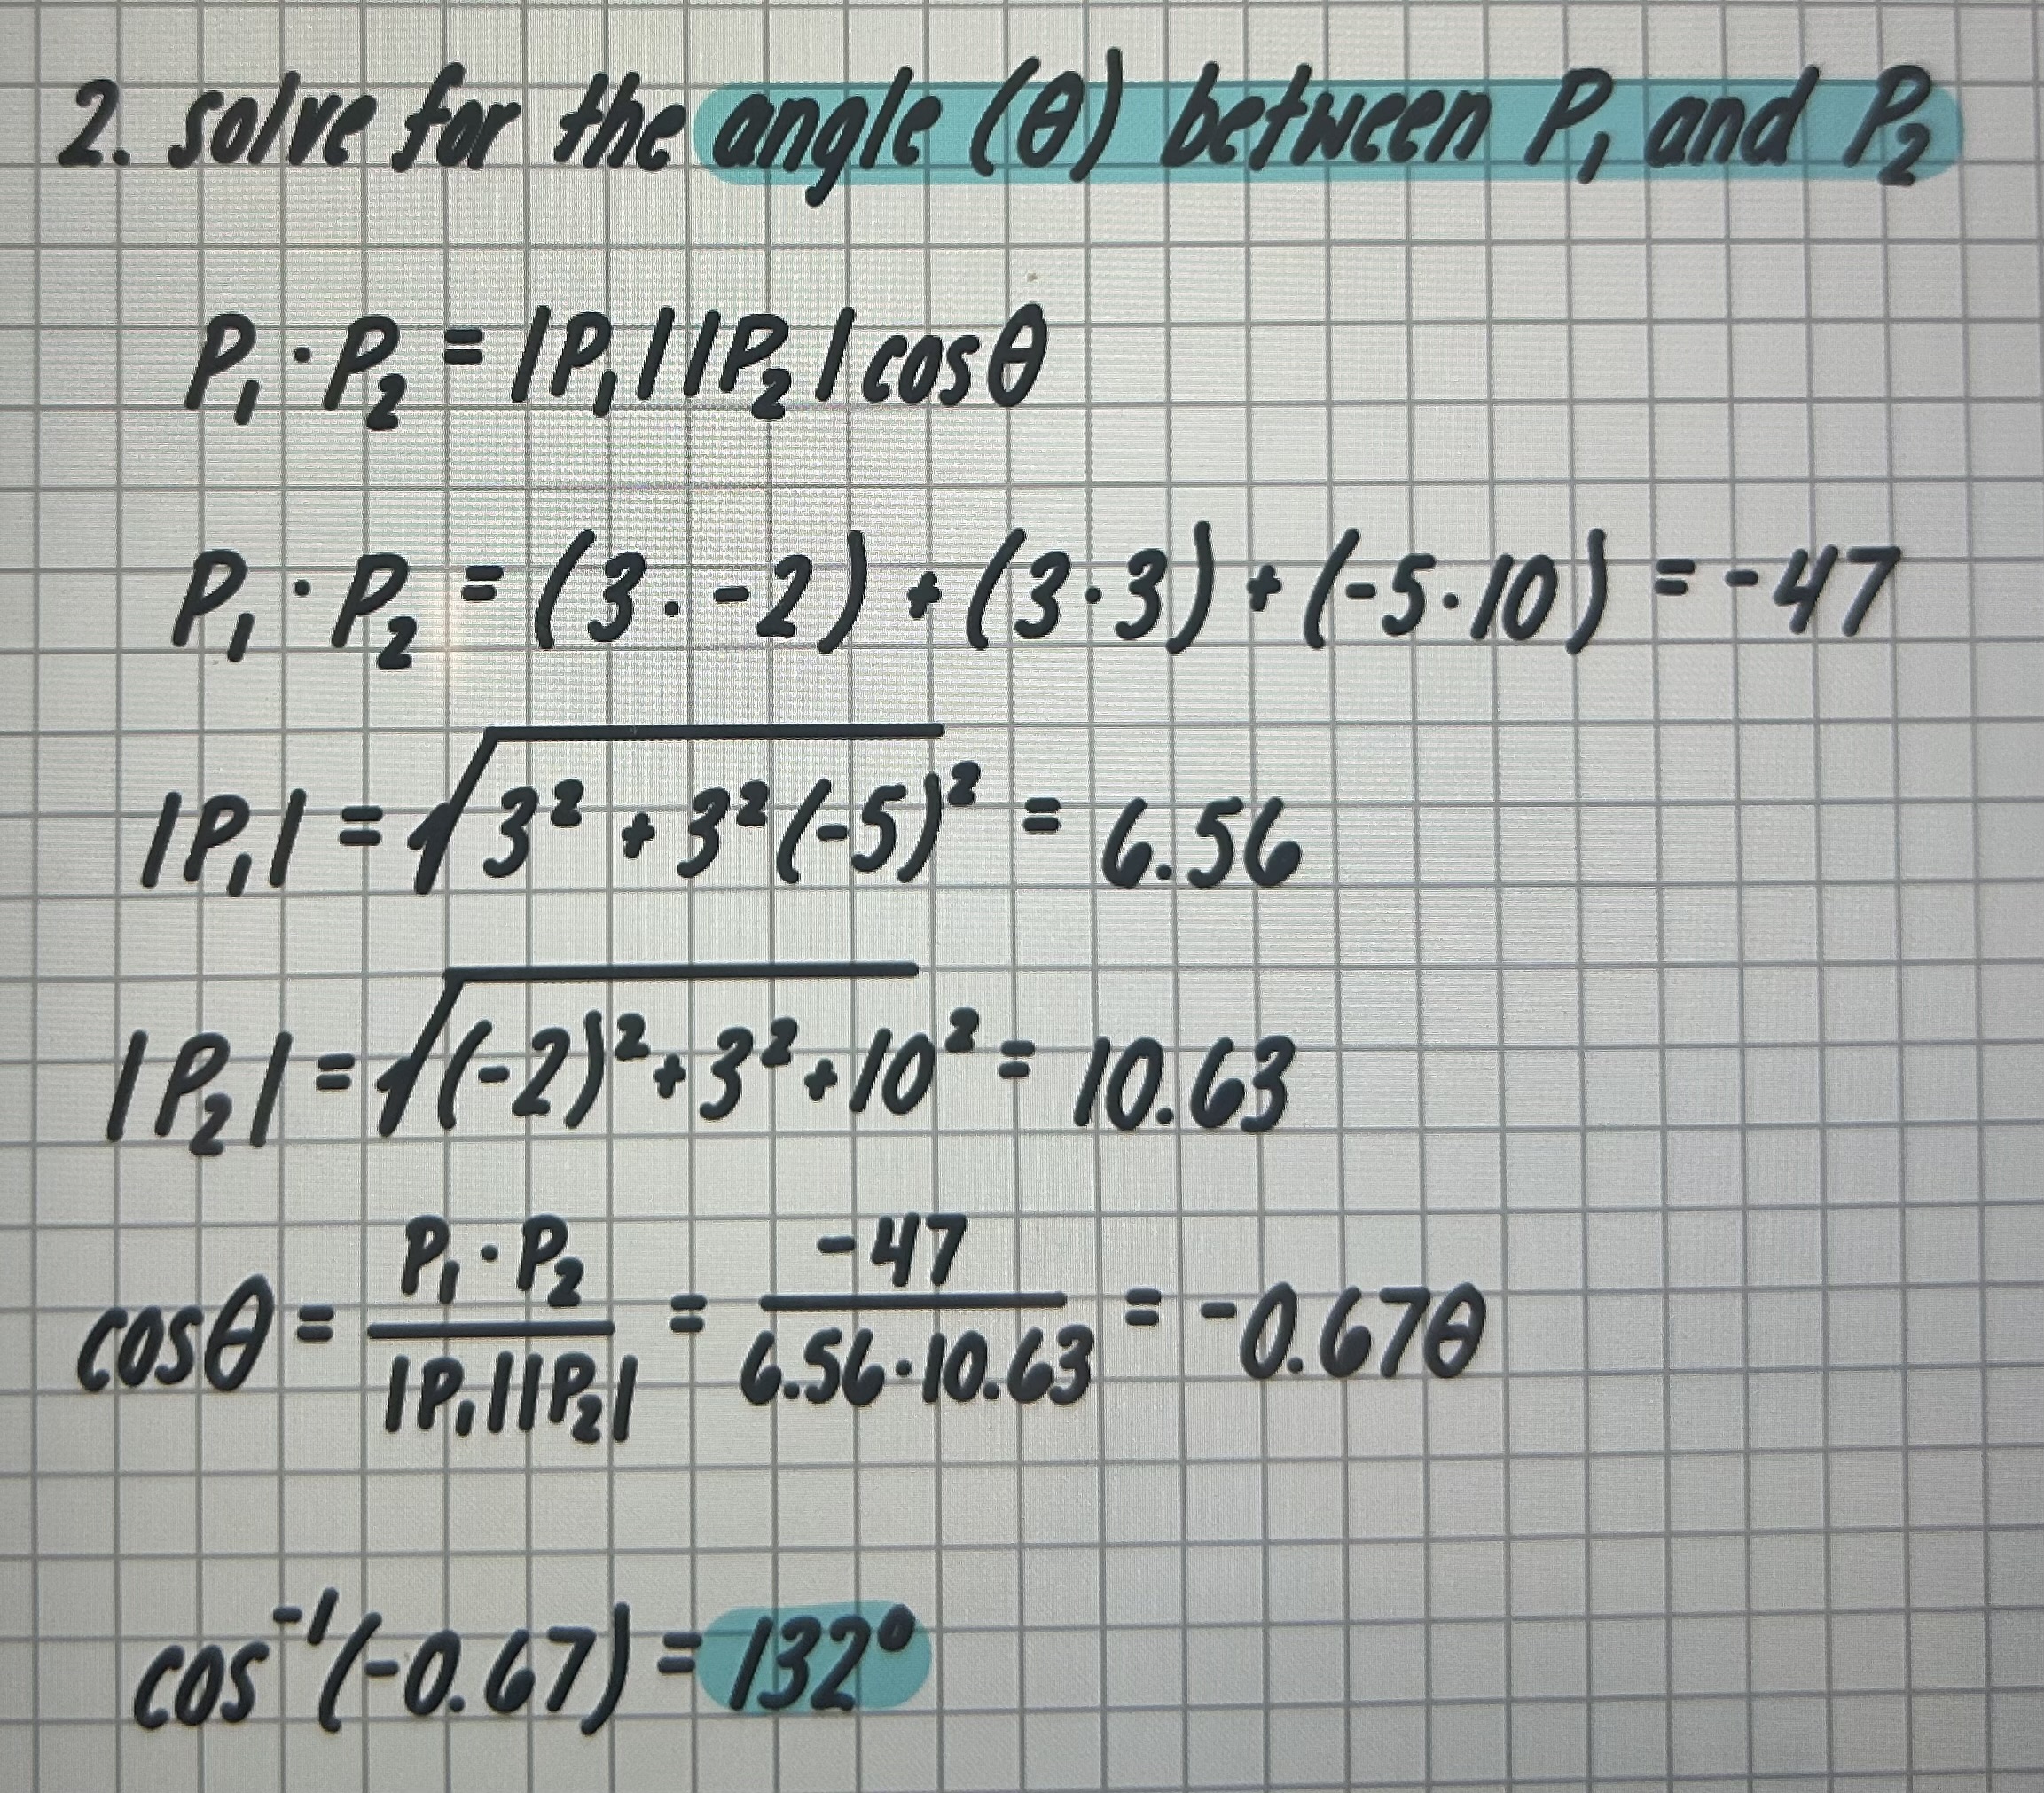 2. solve for the angle (θ) between P₁ and P₂
P₁ · P₂ = |P₁| |P₂| cosθ
P₁ · P₂ = (3 · -2) + (3 · 3) + (-5 · 10) = -47
|P₁| = √3² + 3²(-5)² = 6.56
|P₂| = √(-2)² + 3² + 10² = 10.63
cosθ = P₁ · P₂ / |P₁||P₂| = -47 / 6.56 · 10.63 = -0.67θ
cos⁻¹(-0.67) = 132°